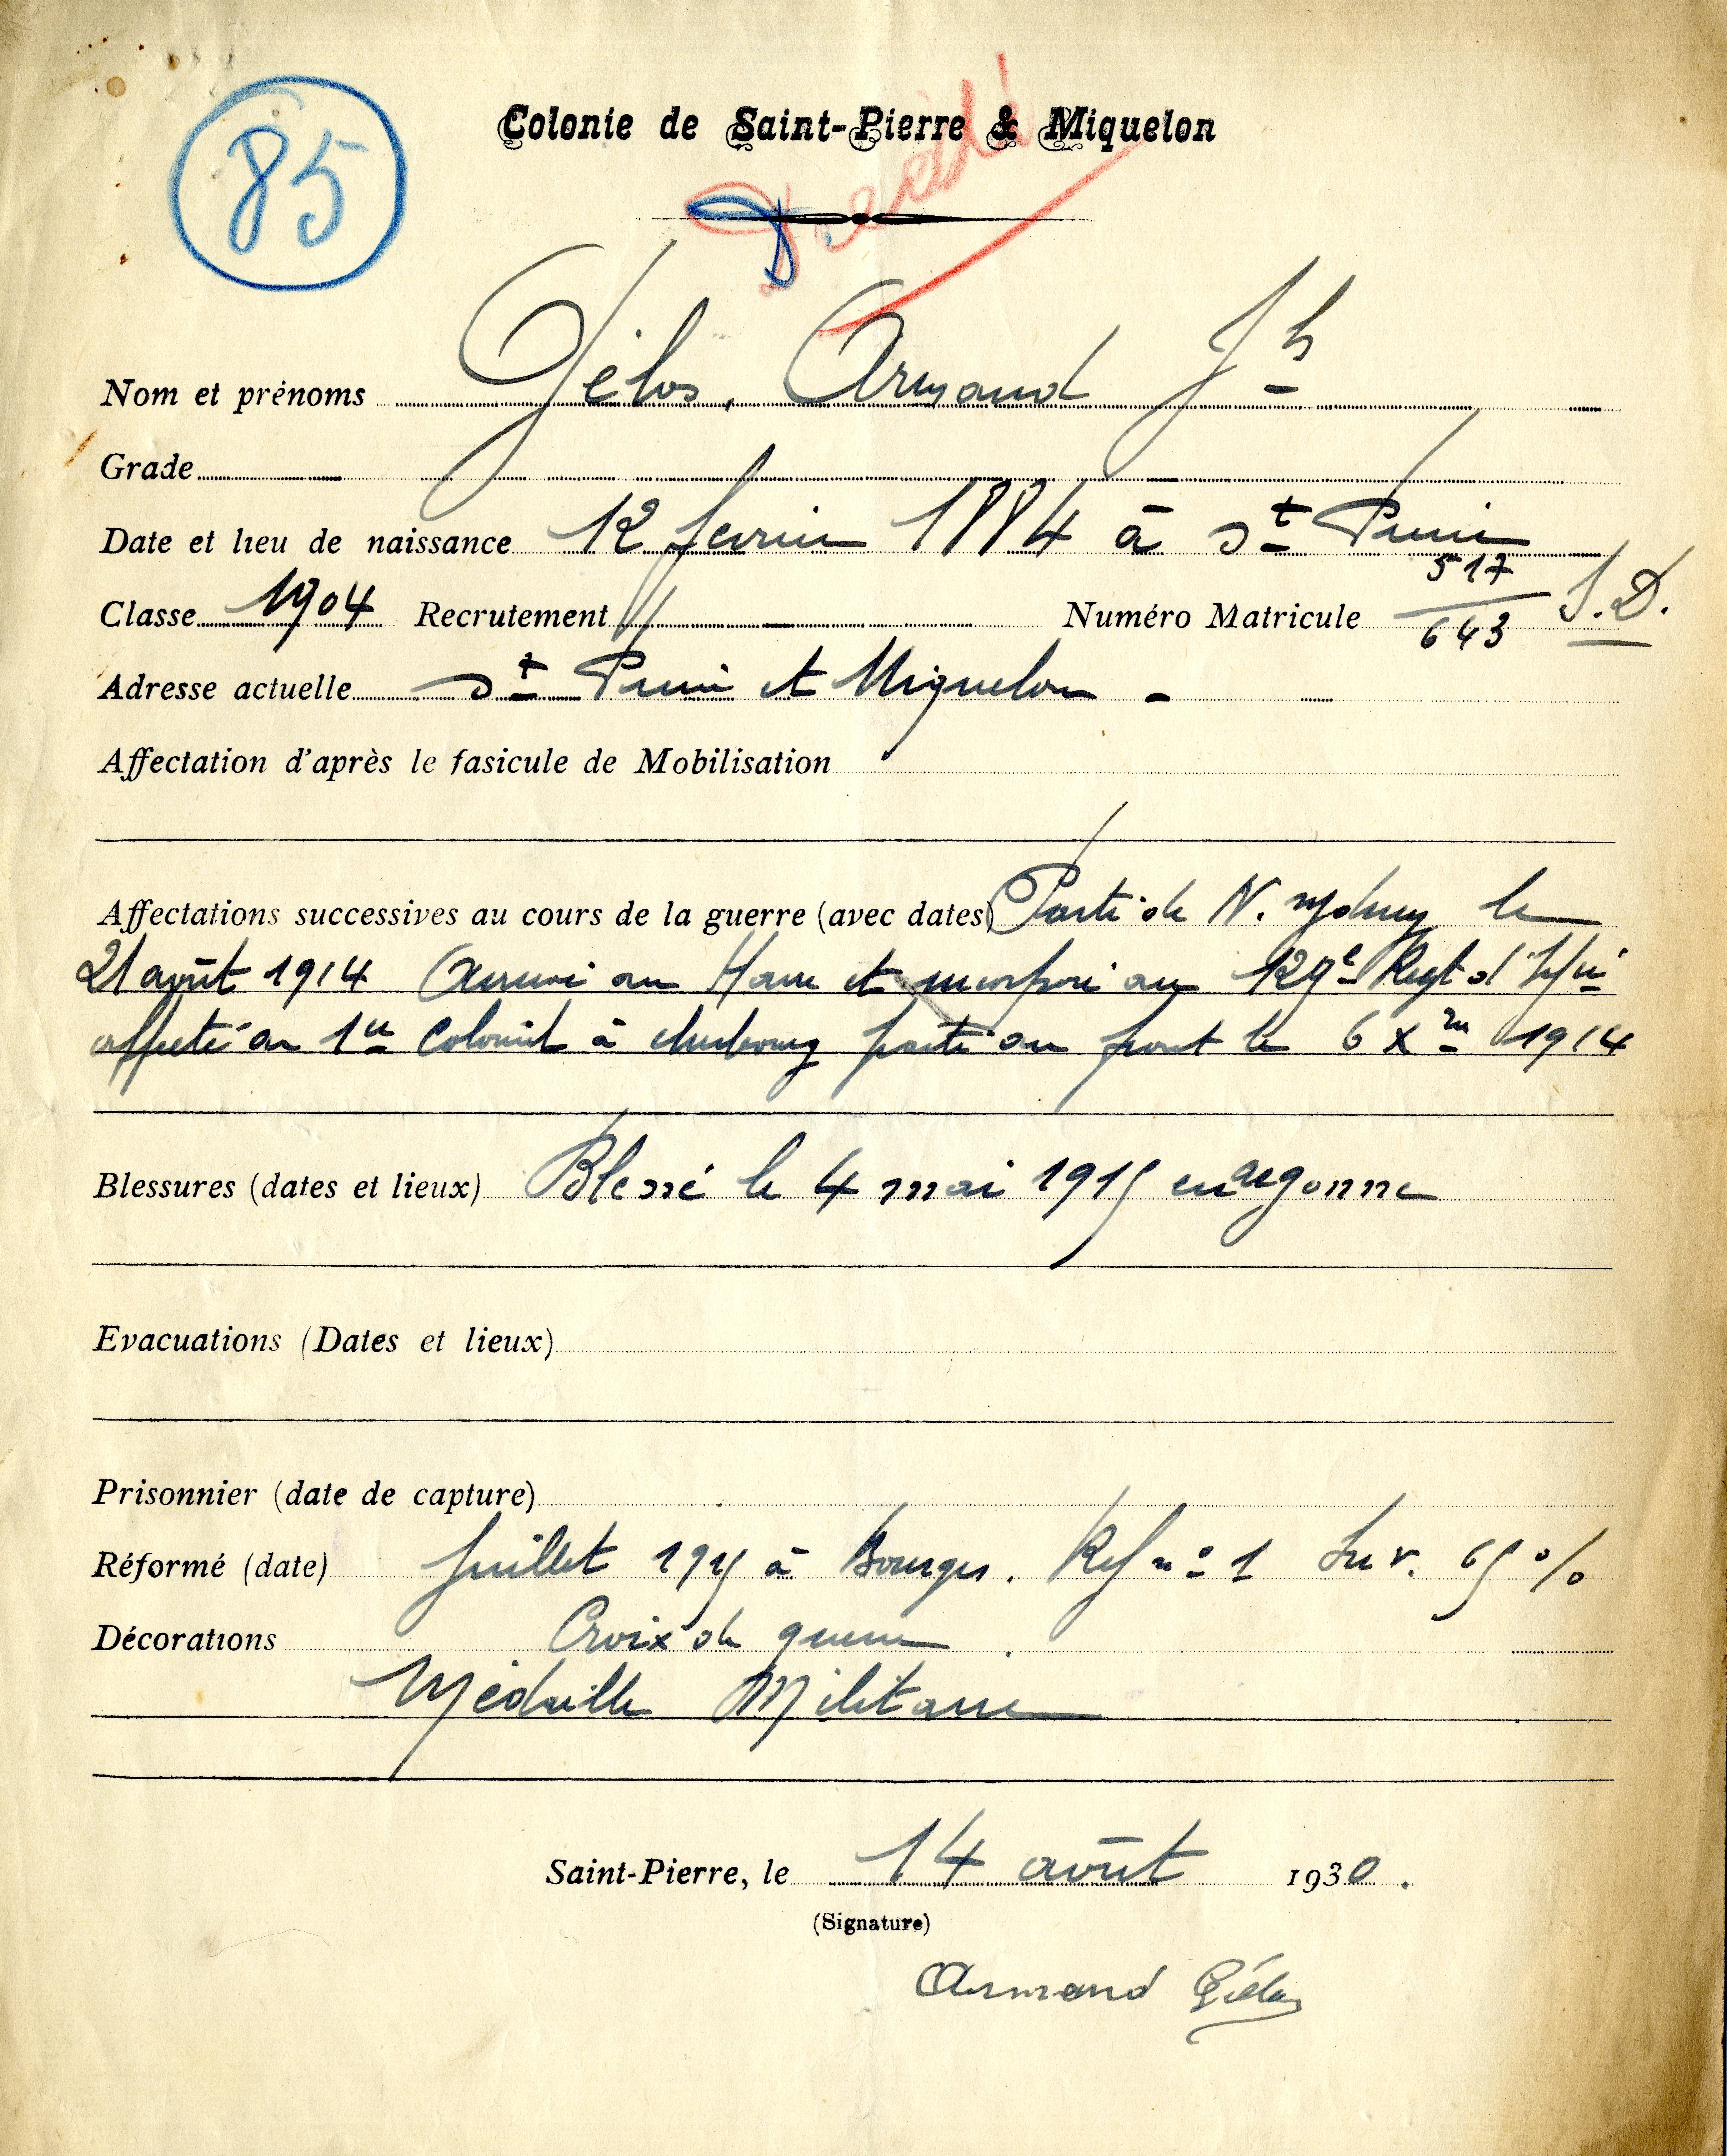 85
Colonie de Saint-Pierre & Miquelon
Décédé
D
Nom et prénoms Gélos, Armand Jh
Grade
Date et lieu de naissance 12 fevrier 1884 à St Pierre
Classe 1904 Recrutement Numéro Matricule 517/643 S.D.
Adresse actuelle St Pierre et Miquelon -
Affectation d'après le fasicule de Mobilisation
Affectations successives au cours de la guerre (avec dates) Parti de N. Sydney le
21 août 1914 Arrivé au Havre et incorporé au 129e Regt d'Infie
affecté au 1er Colonial à cherbourg parti au front le 6 Xbre 1914
Blessures (dates et lieux) Blessé le 4 mai 1915 en argonne
Evacuations (Dates et lieux)
Prisonnier (date de capture)
Réformé (date) Juillet 1915 à Bourges. Ref no 1 Inv. 65 %
Décorations Croix de guerre
Médaille Militaire
Saint-Pierre, le 14 août 1930.
(Signature)
Armand Gélos